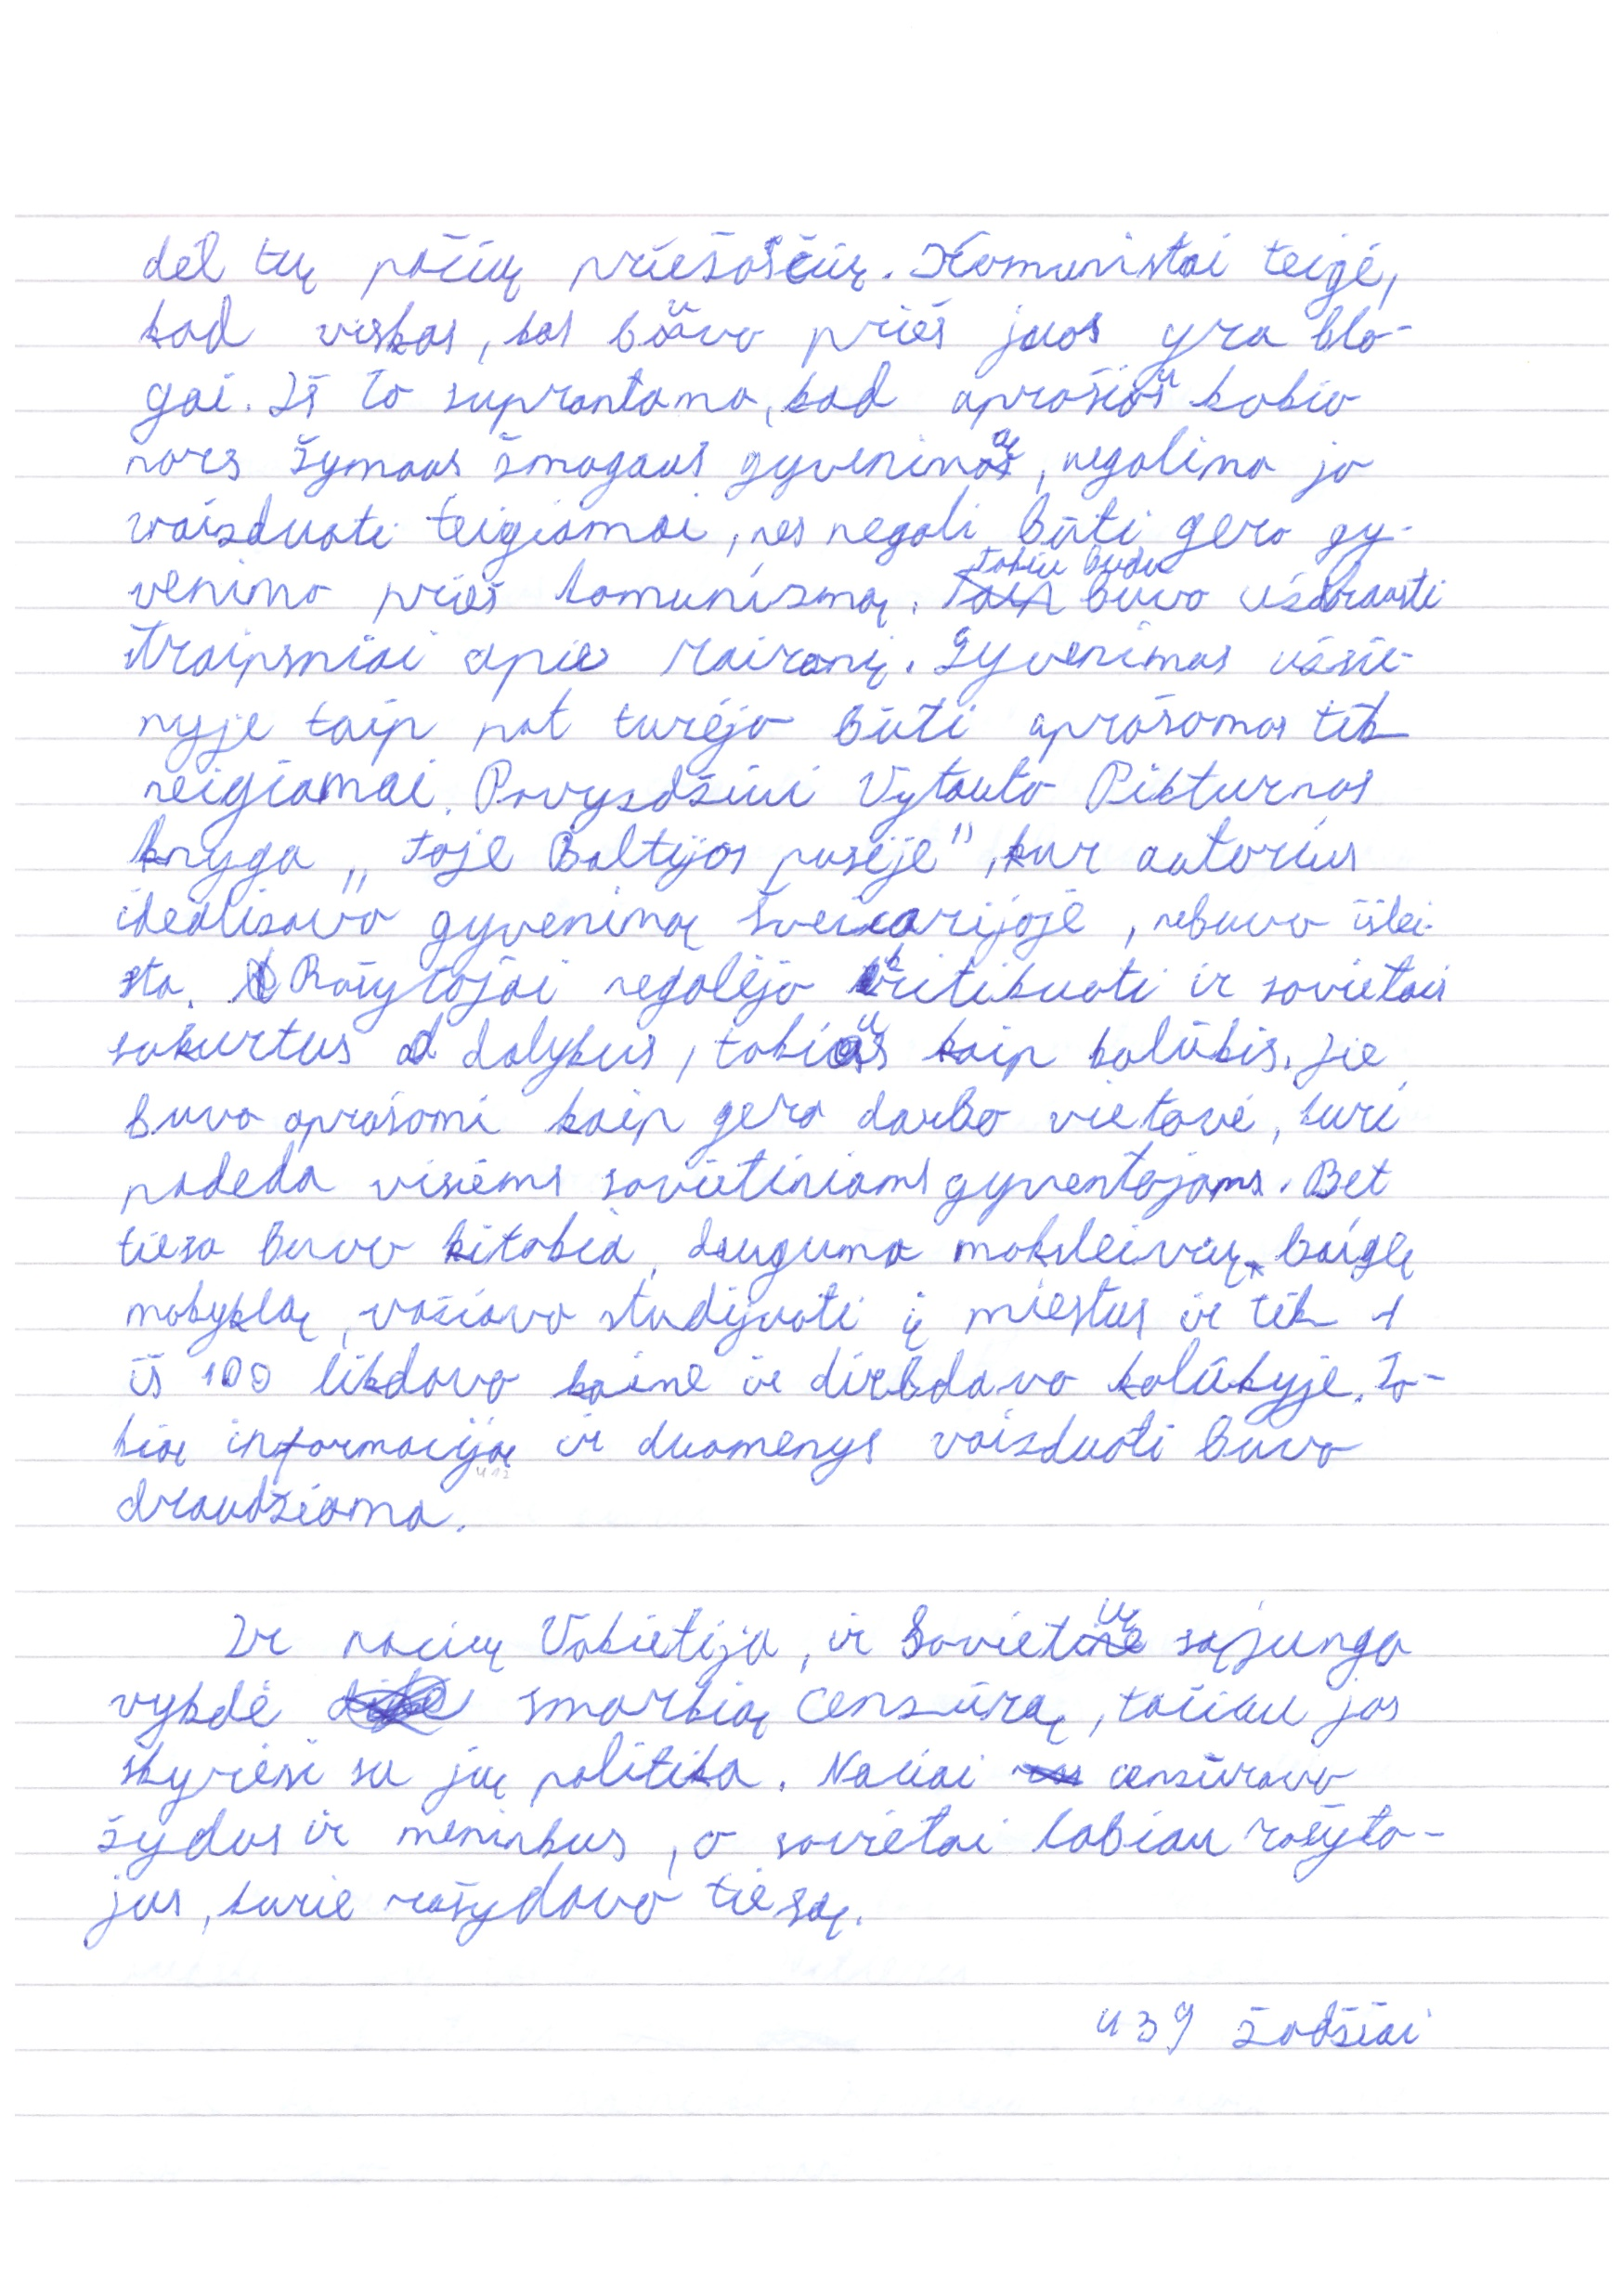 dėl tų pačių priešasčių. Komunistai teigė,
kad viskas, kas buvo prieš juos yra blo-
gai. Iš to suprantama, kad aprašius kokio
nors žymaus žmogaus gyvenimą, negalima jo
vaizduoti teigiamai, nes negali būti gero gy-
venimo prieš komunizmą. Tokiu būdu buvo uždrausti
straipsniai apie Maironį. Gyvenimas užsie-
nyje taip pat turėjo būti aprašomas tik
neigiamai. Pavyzdžiui Vytauto Pikturnos
knyga „Toje Baltijos pusėje", kur autorius
idealizavo gyvenimą Šveicarijoje, nebuvo išlei-
sta. Rašytojai negalėjo kritikuoti ir sovietais
sukurtus dalykus, tokius kaip kolūkis. Jie
buvo aprašomi kaip gera darbo vietovė, kuri
padeda visiems sovietiniams gyventojams. Bet
tiesa buvo kitokia, dauguma moksleivių, baigę
mokyklą, važiavo studijuoti į miestus ir tik 1
iš 100 likdavo kaime ir dirbdavo kolūkyje. To-
kią informaciją ir duomenys vaizduoti buvo
draudžiama.
Ir nacių Vokietija, ir Sovietų sąjunga
vykdė smarkią cenzūrą, tačiau jos
skyrėsi su jų politika. Naciai cenzūravo
žydus ir meninkus, o sovietai labiau rašyto-
jus, kurie rašydavo tiesą.
439 žodžiai